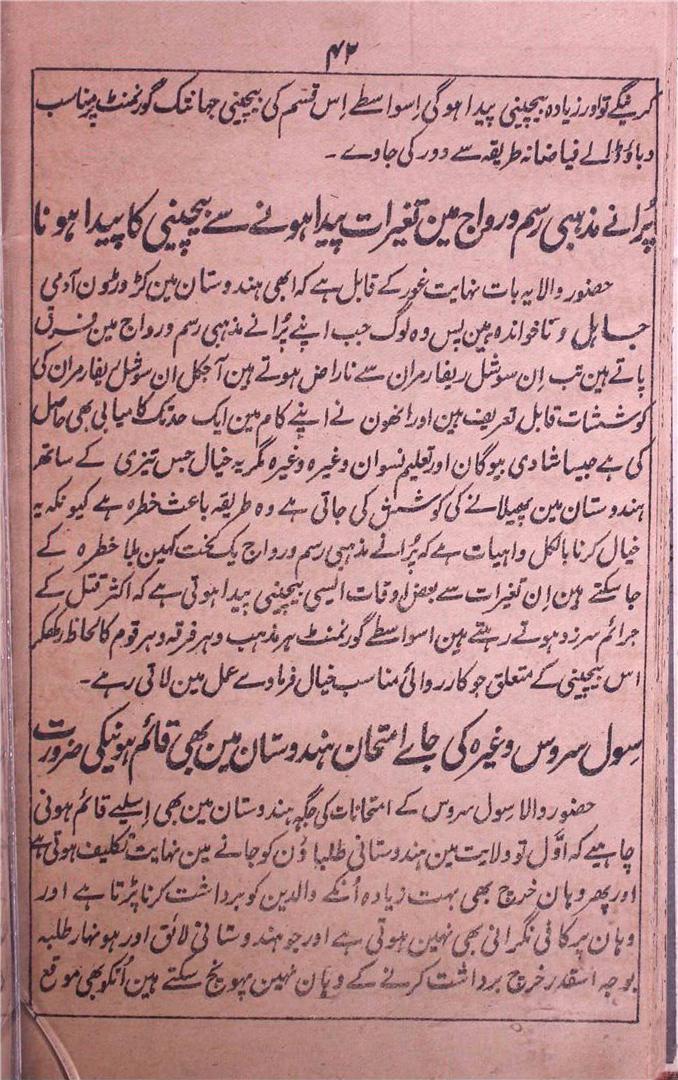 ۴۲
کرینگے تو اور زیادہ بیچینی پیدا ہو گی اسواسطے اِس قسم کی بیچینی جہانتک گورنمنٹ پر مناسب
دباؤ ڈالے فیاضانہ طریقہ سے دور کی جاوے ۔
پُرانے مذہبی رسم و رواج مین تغیرات پیدا ہونے سے بیچینی کا پیدا ہونا
حضور والا یہ بات نہایت غور کے قابل ہے کہ ابھی ہندوستان مین کڑوڑون آدمی
جاہل و ناخواندہ ہین پس وہ لوگ جب اپنے پُرانے مذہبی رسم و رواج مین فرق
پاتے ہین تب اِن سوشل ریفارمران سے ناراض ہوتے ہین آجکل ان سوشل ریفارمران کی
کوششات قابل تعریف ہین اور انھون نے اپنے کام مین ایک حد تک کامیابی بھی حاصل
کی ہے جیسا شادی بیوگان اور تعلیم نسوان وغیرہ وغیرہ مگر یہ خیال جس تیزی کے ساتھ
ہندوستان مین پھیلانے کی کوشش کی جاتی ہے وہ طریقہ باعث خطرہ ہے کیونکہ یہ
خیال کرنا بالکل واہیات ہے کہ پُرانے مذہبی رسم و رواج یک لخت کہین بلا خطرہ کے
جا سکتے ہین اِن تغیرات سے بعض اوقات ایسی بیچینی پیدا ہوتی ہے کہ اکثر قتل کے
جرائم سرزد ہوتے رہتے ہین اسواسطے گورنمنٹ ہر مذہب و ہر فرقہ و ہر قوم کا لحاظ رکھکر
اس بیچینی کے متعلق جو کارروائی مناسب خیال فرماوے عمل مین لاتی رہے ۔
سِول سروس وغیرہ کی جاے امتحان ہندوستان مین بھی قائم ہونیکی ضرورت
حضور والا سِول سروس کے امتحانات کی جگہ ہندوستان مین بھی اِسلیے قائم ہونی
چاہیے کہ اوّل تو ولایت مین ہندوستانی طلباؤن کو جانے مین نہایت تکلیف ہوتی ہے
اور پھر وہان خرچ بھی بہت زیادہ اُنکے والدین کو برداشت کرنا پڑتا ہے اور
وہان پر کافی نگرانی بھی نہین ہوتی ہے اور جو ہندوستانی لائق اور ہونہار طلبہ
بوجہ اسقدر خرچ برداشت کرنے کے وہان نہین پہونچ سکتے ہین اُنکو بھی موقع